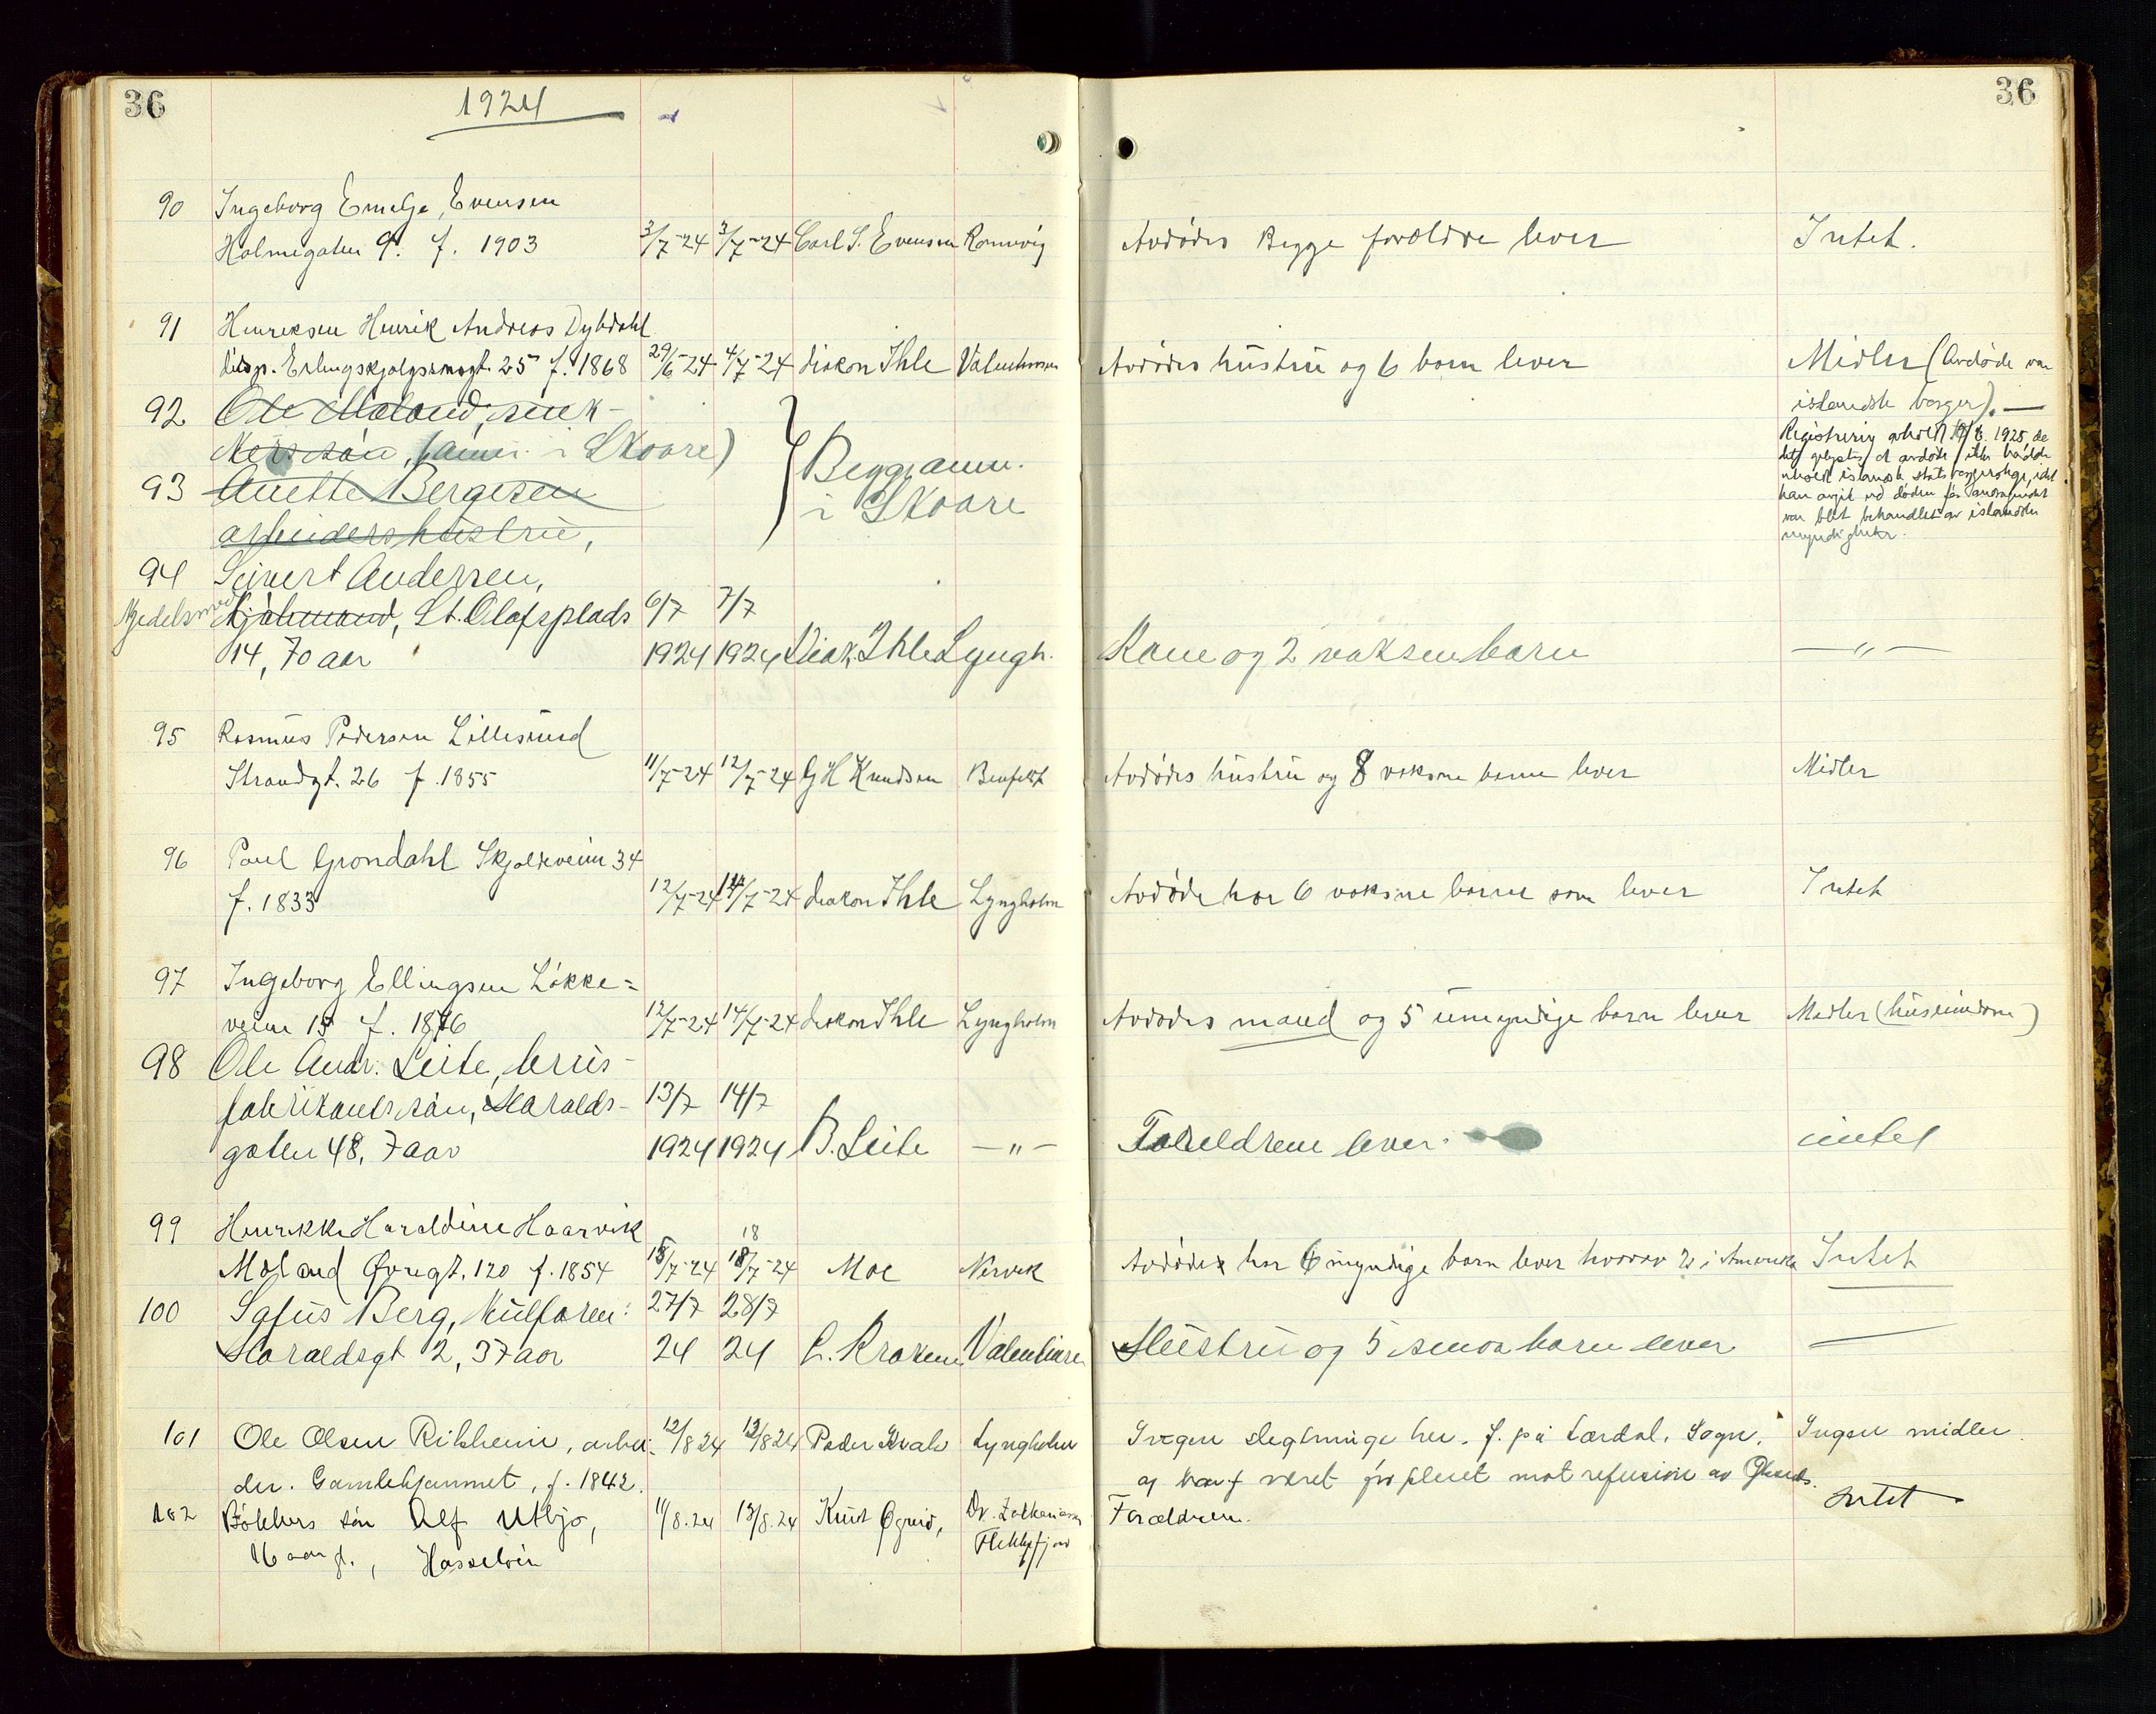 36
1924
36
90 Ingeborg Emelje Evensen
Holmegaten 9. f. 1903 3/7-24 3/7-24 Carl S. Evensen Rannvig Avdødes Begge foreldre lever Intet.
91 Henriksen Henrik Andreas Dybdahl
disp. Erlingskjalgsonsgt. 25 f. 1868 29/6-24 4/7-24 diakon Ihle Valentinsen Avdødes hustru og 6 barn lever Midler (Avdøde var
islandsk borger). —
92 Ole Moland,
søn, (anm. i Skaare)
93 Anette Bergesen
arbeidershustru,
Begge anm.
i Skaare
Registrering avholdt 1925, de
avdøde ikke hadde
islandsk statsborgerskap, idet
han avgik ved døden før
var blet behandlet av islandske
myndigheter.
94 Seivert Andersen,
Kjømand, St. Olafsplads 6/7 7/7
14, 70 aar 1924 1924 Diak. Ihle Lyngh. Kone og 2 voksen barn — " —
95 Rasmus Pedersen Lillesund
Strandgt. 26 f. 1855 11/7-24 12/7-24 G H Knudsen Benfeldt Avdødes hustru og 8 voksne barn lever Midler
96 Paul Grøndahl Skjoldeveien 34
f. 1833 12/7-24 14/7-24 diakon Ihle Lyngholm Avdøde har 6 voksne barn som lever Intet
97 Ingeborg Ellingsen Løkke=
veien 15 f. 1876 12/7-24 14/7-24 diakon Ihle Lyngholm Avdødes mand og 5 umyndige barn lever Midler (huseiendom)
98 Ole Andr. Leite, brus-
fabrikants søn, Haralds- 13/7 14/7
gaten 48, 7 aar 1924 1924 B. Leite — " — Foreldrene lever. intet
99 Henrikke Haraldine Haarvik
18
Moland Øvregt. 120 f. 1854 18/7-24 18/7-24 Moe Nervik Avdøde har 6 myndige barn lever hvorav 2 i Amerika Intet
100 Sofus Berg, Kulforen: 27/7 28/7
Haraldsgt 2, 37 aar 24 24 L. Kraken Valentinsen Hustru og 5 smaa barn lever —
101 Ole Olsen Rikheim, arbei- 12/8 24 12/8 24 Peder Kvale Lyngholm Ingen slegtninge her. f. på Lærdal, Sogn, Ingen midler.
der. Gamlehjemmet, f. 1842. og har været forpleiet mot refusion av
102 Bøkkers søn Alf Utbjo, 11/8.24 13/8.24 Knut Øgreid, Dr. Zakariasen Forældrene. Intet
16 aar gl., Hasseløen Flekkefjord